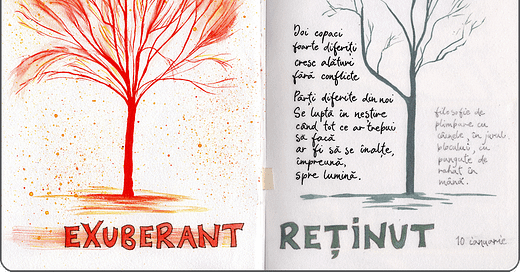 EXUBERANT
Doi copaci
foarte diferiți
cresc alături
fără conflicte
Părți diferite din noi
Se luptă în neștire
când tot ce ar trebui
să facă
ar fi să se înalțe,
împreună,
spre lumină.
filosofie de
plimbare cu
câinele, în jurul
blocului, cu
pungute de
rahăt în
mână.
REȚINUT
10 ianuarie